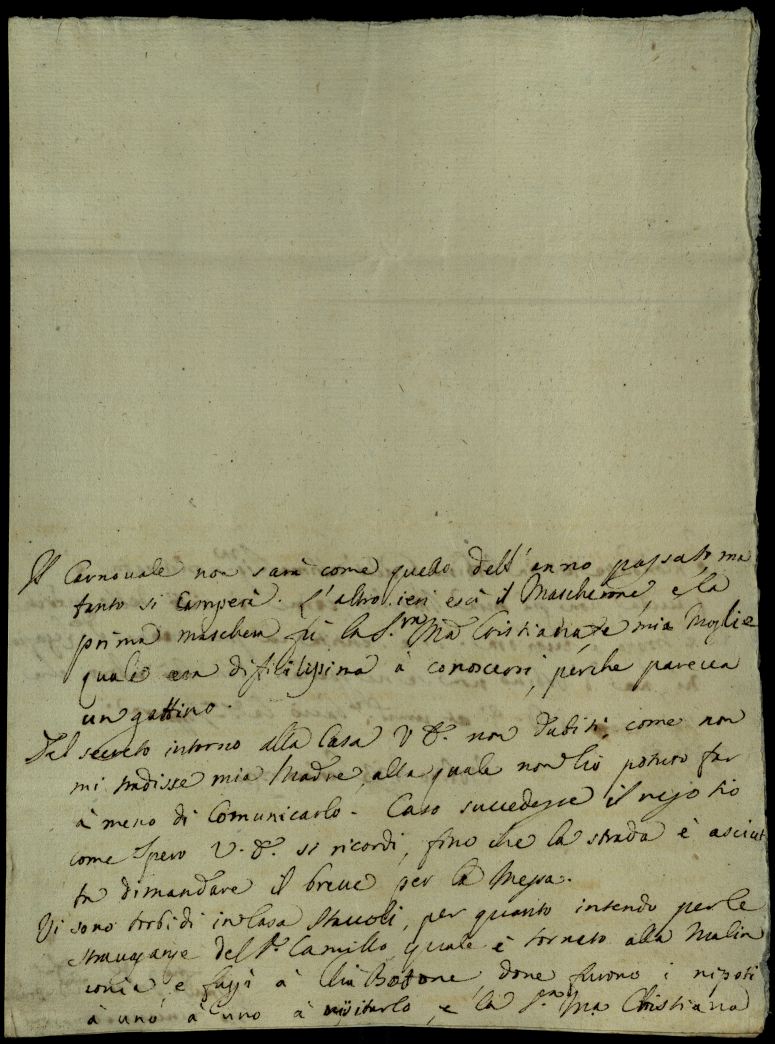 Il Carnouale non sarà come quello dell'anno passato, ma
tanto si Camperà. L'altro ieri escì il Mascherone, e la
prima maschera fù la S.ra Ma Cristiana, e mia Moglie
quale era dificilissima à conoscersi, perche pareua
un gattino.
Del secreto intorno alla Casa V.S. non dubiti, come non
mi tradisse mia Madre, alla quale non hò potuto far
à meno di Comunicarlo. Caso succedesse il negotio
come Spero V.S. si ricordi, fino che la strada è asciut
ta dimandare il breue per la Messa.
Vi sono torbidi in Casa Stauoli, per quanto intendo per le
strauaganze del S.r Camillo, quale è tornato alla Malin
conia e fuggì à Botone, doue furono i nipoti
à uno à uno à uisitarlo, e la S.ra Ma Christiana